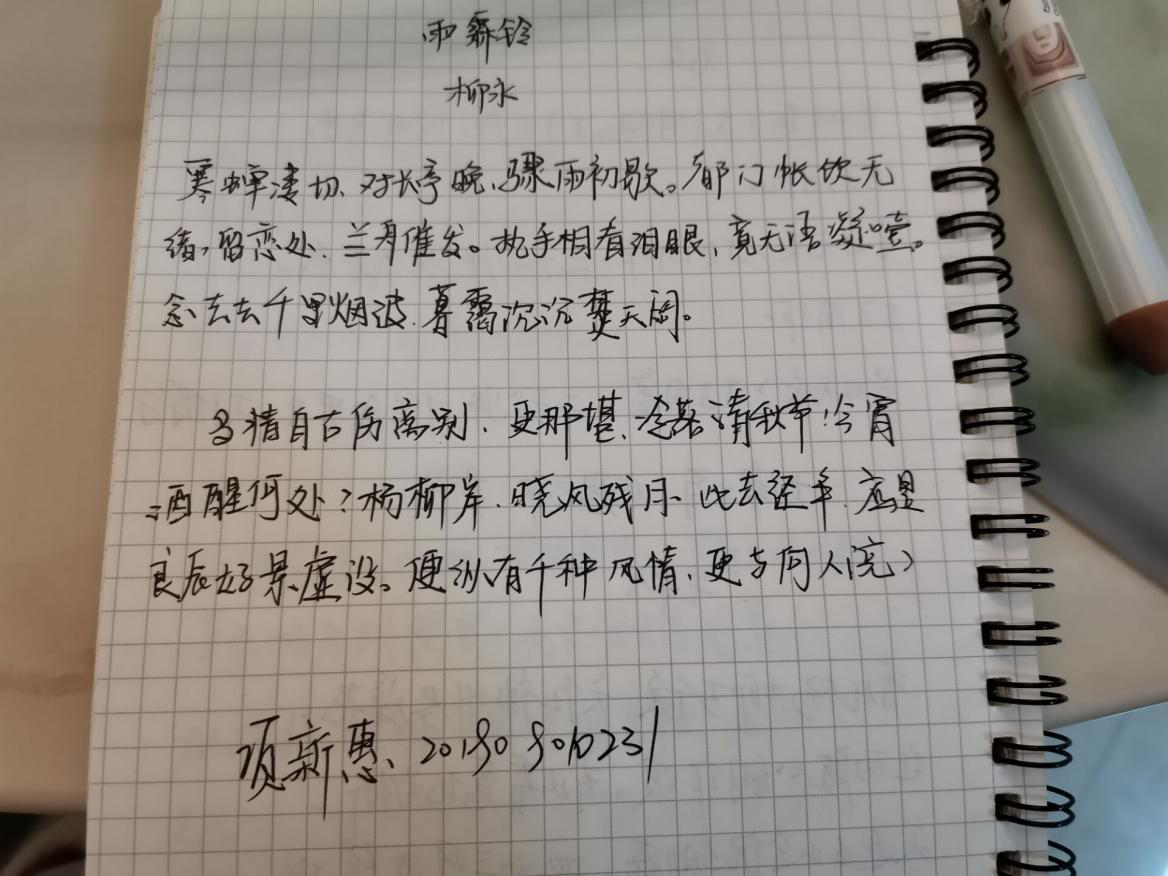 雨霖铃
柳永
寒蝉凄切、对长亭晚、骤雨初歇。都门帐饮无
绪，留恋处、兰舟催发。执手相看泪眼，竟无语凝噎。
念去去千里烟波、暮霭沉沉楚天阔。
多情自古伤离别、更那堪、冷落清秋节！今宵
酒醒何处？杨柳岸、晓风残月、此去经年、应是
良辰好景虚设。便纵有千种风情、更与何人说？
项新惠、